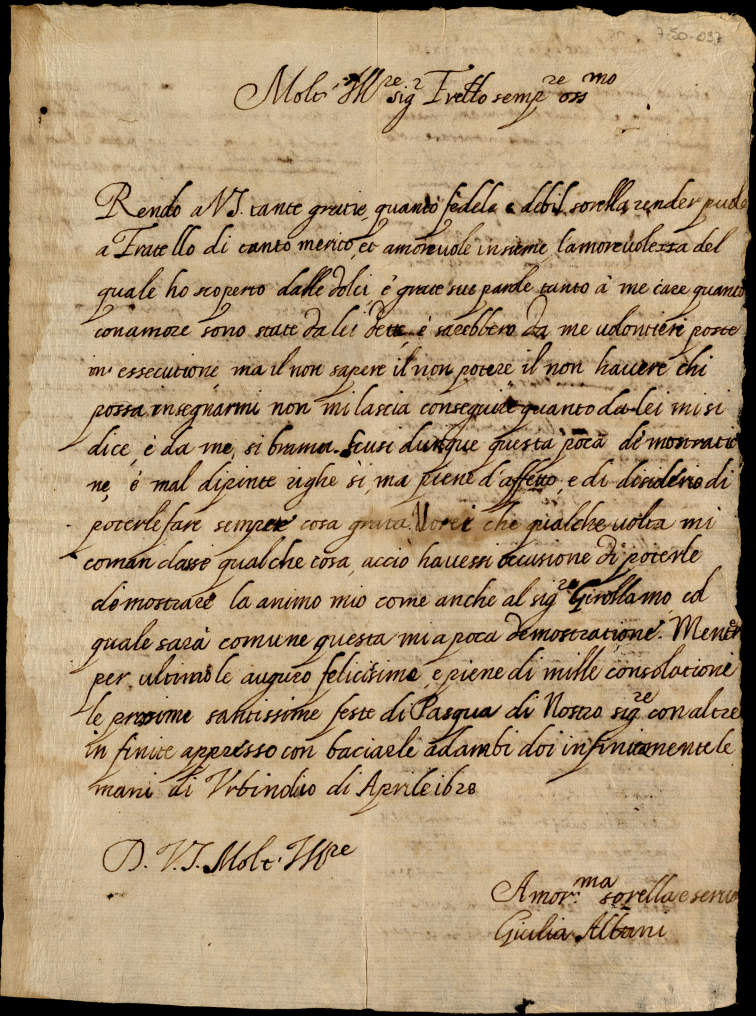 7-50-037
Molt' Ill.re sig.r Fr̃ello semp.re oss.mo
Rendo a V.S. tante gratie, quanto fedele e debil sorella render puole
a Fratello di tanto merito, et amorevole insieme l'amorevolezza del
quale ho scoperto dalle dolci, e grate sue parole tanto à me care quanto
con amore sono state da lei dette, e sarebbero da me volontieri poste
in' essecutione ma il non sapere il non potere il non havere chi
possa insegnarmi non mi lascia conseguire quanto da lei mi si
dice, e da me, si brama. scusi dunque questa poca demostratio
ne, e mal dipinte righe si, ma piene d'affetto, e di desiderio di
poterle fare sempre cosa grata. Vorei che qualche volta mi
comandasse qualche cosa, acciò havessi occasione di poterle
demostrare la animo mio come anche al sig.re Girollamo, col
quale sarà comune questa mia poca demostratione. Mentre
per ultimo le auguro felicissime, e piene di mille consolatione
le prosime santissime feste di Pasqua di Nostro sig.re con altre
in finite appresso con baciarle adambi doi infinitamente le
mani di Vrbino di Aprile 1628
D. V.S. Molt' Ill.re
Amor.ma sorella e serva
Giulia Albani